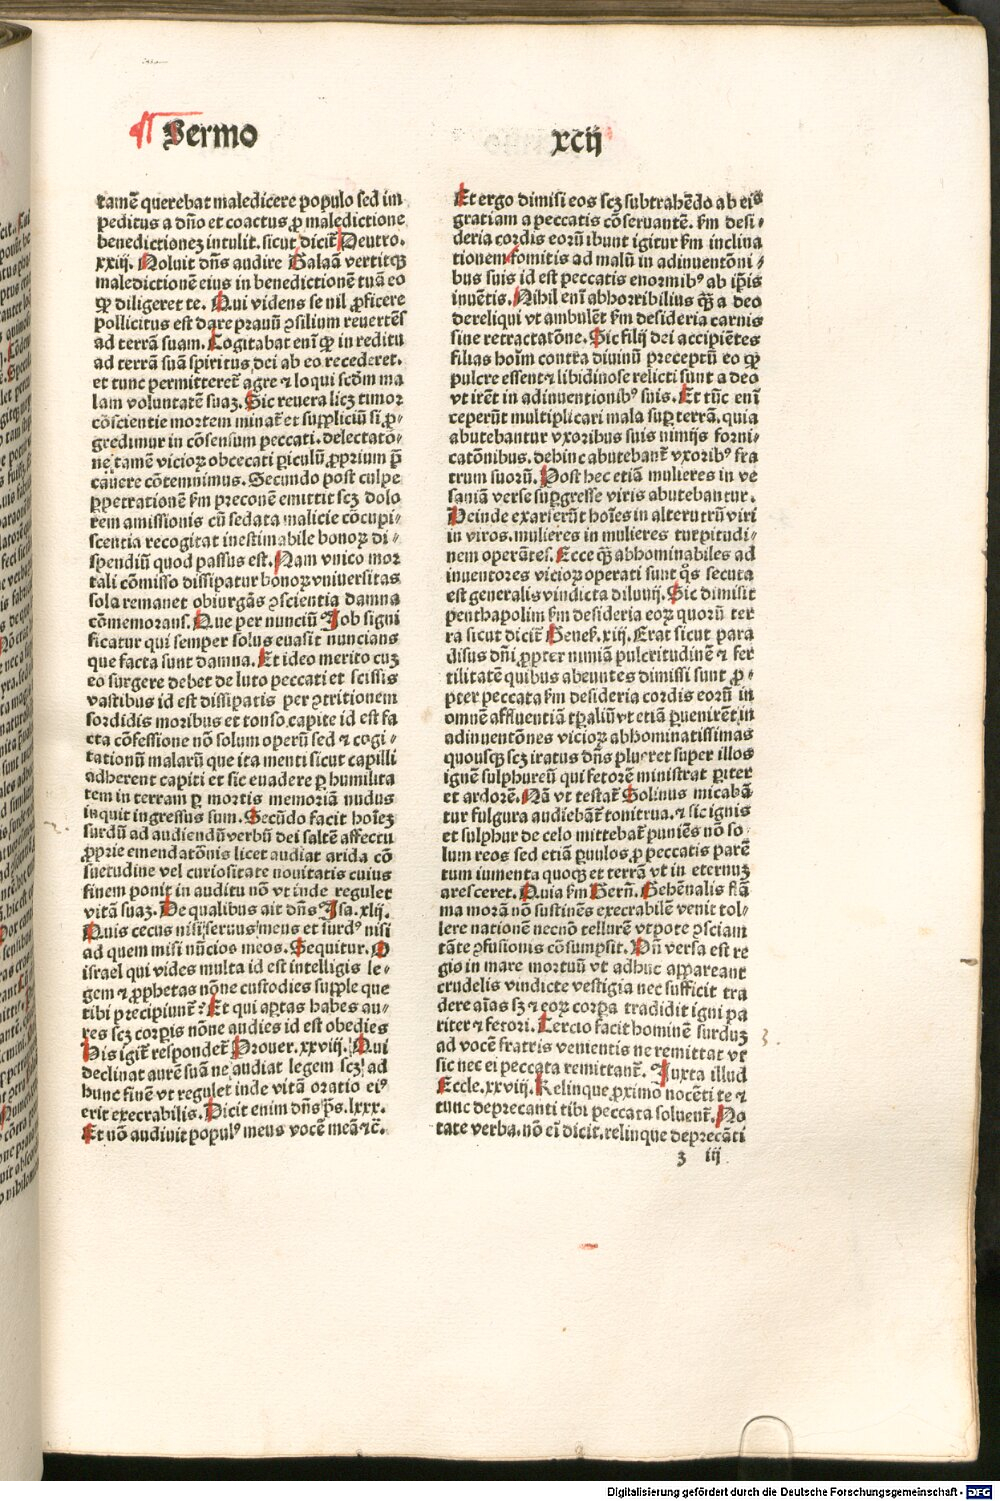 Sermo
xcij
tamē querebat maledicere populo sed im
peditus a dño et coactus ꝓ maledictione
benedictionez intulit. sicut dicit̄ Deutro.
xxiij. Noluit dn̄s audire Balaā vertitqꝫ
maledictionē eius in benedictionē tuā eo
ꝙ diligeret te. Qui videns se nil ꝓficere
pollicitus est dare prauū ꝯsilium reuertēs
ad terrā suam. Cogitabat enī ꝙ in reditu
ad terrā suā spiritus dei ab eo recederet.
et tunc permitteret̄ agre ⁊ loqui scdm ma
lam voluntatē suaꝫ. Sic reuera licꝫ timor
cōscientie mortem minat̄ et suppliciū si ꝓ⸗
gredimur in cōsensum peccati. delectatō⸗
ne tamē vicioꝝ obcecati ꝑiculū ꝓprium p̄
cauere cōtemnimus. Secundo post culpe
ꝑpetrationē ẜm preconē emittit scꝫ dolo
rem amissionis cū sedata malicie cōcupi⸗
scentia recogitat inestimabile bonoꝝ di⸗
spendiū quod passus est. Nam vnico mor
tali cōmisso dissipatur bonoꝝ vniuersitas
sola remanet obiurgās ꝯscientia damna
cōmemorans. Que per nunciū Job signi
ficatur qui semper solus euasit nuncians
que facta sunt damna. Et ideo merito cuꝫ
eo surgere debet de luto peccati et scissis
vastibus id est dissipatis per ꝯtritionem
sordidis moribus et tonso capite id est fa
cta cōfessione nō solum operū sed ⁊ cogi⸗
tationū malarū que ita menti sicut capilli
adherent capiti et sic euadere ꝑ humilita
tem in terram ꝑ mortis memoriā nudus
inquit ingressus sum. Secūdo facit hoīeꝫ
surdū ad audiendū verbū dei saltē affectu
ꝓprie emendatōnis licet audiat arida cō
suetudine vel curiositate nouitatis cuius
finem ponit in auditu nō vt inde regulet
vitā suaꝫ. De qualibus ait dn̄s Isa. xlij.
Quis cecus nisi seruus meus et surdꝰ nisi
ad quem misi nūcios meos. Sequitur. O
israel qui vides multa id est intelligis le⸗
gem ⁊ ꝓphetas nōne custodies supple que
tibi precipiunt̄? Et qui aꝑtas habes au⸗
res scꝫ corꝑis nōne audies id est obedies
His igit̄ respondet̄ Prouer. xxviij. Qui
declinat aurē suā ne audiat legem scꝫ ad
hunc finē vt regulet inde vitā oratio eiꝰ
erit execrabilis. Dicit enim dn̄s ps̄. lxxx.
Et nō audiuit populꝰ meus vocē meā ⁊c̄.
Et ergo dimisi eos scꝫ subtrahēdo ab eis
gratiam a peccatis cōseruantē. ẜm desi⸗
deria cordis eorū ibunt igitur ẜm inclina
tionem fomitis ad malū in adinuentōni⸗
bus suis id est peccatis enormibꝰ ab ip̄is
inuētis. Nihil enī abhorribilius qꝫ̄ a deo
derelinqui vt ambulēt ẜm desideria carnis
sine retractatōne. Sic filij dei accipiētes
filias hoīm contra diuinū preceptū eo ꝙ
pulcre essent ⁊ libidinose relicti sunt a deo
vt irēt in adinuentionibꝰ suis. Et tūc enī
ceperūt multiplicari mala suꝑ terrā. quia
abutebantur vxoribus suis nimijs forni⸗
catōnibus. dehinc abutebant̄ vxoribꝰ fra
trum suorū. Post hec etiā mulieres in ve
saniā verse suꝑgresse viris abutebantur.
Deinde exarserūt hoīes in alterutrū viri
in viros. mulieres in mulieres turpitudi⸗
nem operātes. Ecce qꝫ̄ abhominabiles ad
inuentores vicioꝝ operati sunt qͦs secuta
est generalis vindicta diluuij. Sic dimisit
penthapolim ẜm desideria eoꝝ quorū ter
ra sicut dicit̄ Genes̄. xiij. Erat sicut para
disus dñi ꝓpter nimiā pulcritudinē ⁊ fer
tilitatē quibus abeuntes dimissi sunt ꝓ⸗
pter peccata ẜm desideria cordis eorū in
omnē affluentiā tꝑaliū vt etiā ꝑuenirēt in
adinuentōnes vicioꝝ abhominatissimas
quousqꝫ scꝫ iratus dn̄s plueret super illos
ignē sulphureū qui fetorē ministrat ꝑiter
et ardorē. Nā vt testat̄ Solinus micabā
tur fulgura audiebāt̄ tonitrua. ⁊ sic ignis
et sulphur de celo mittebat̄ puniēs nō so⸗
lum reos sed etiā ꝑuulos ꝓ peccatis parē
tum iumenta quoqꝫ et terrā vt in eternuꝫ
aresceret. Quia ẜm Bern̄. Gehēnalis flā
ma morā nō sustinēs execrabilē venit tol⸗
lere nationē necnō tellurē vtpote ꝯsciam
tāte ꝯfusionis cōsumpsit. Vn̄ versa est re
gio in mare mortuū vt adhuc appareant
crudelis vindicte vestigia nec sufficit tra
dere aīas sꝫ ⁊ eoꝝ corꝑa tradidit igni pa
riter ⁊ fetori. Tercio facit hominē surduꝫ
ad vocē fratris venientis ne remittat vt
sic nec ei peccata remittant̄. Iuxta illud
Eccle. xxviij. Relinque ꝓximo nocēti te ⁊
tunc deprecanti tibi peccata soluent̄. No
tate verba. nō eī dicit. relinque deprecāti
ʒ iij
Digitalisierung gefördert durch die Deutsche Forschungsgemeinschaft - DFG